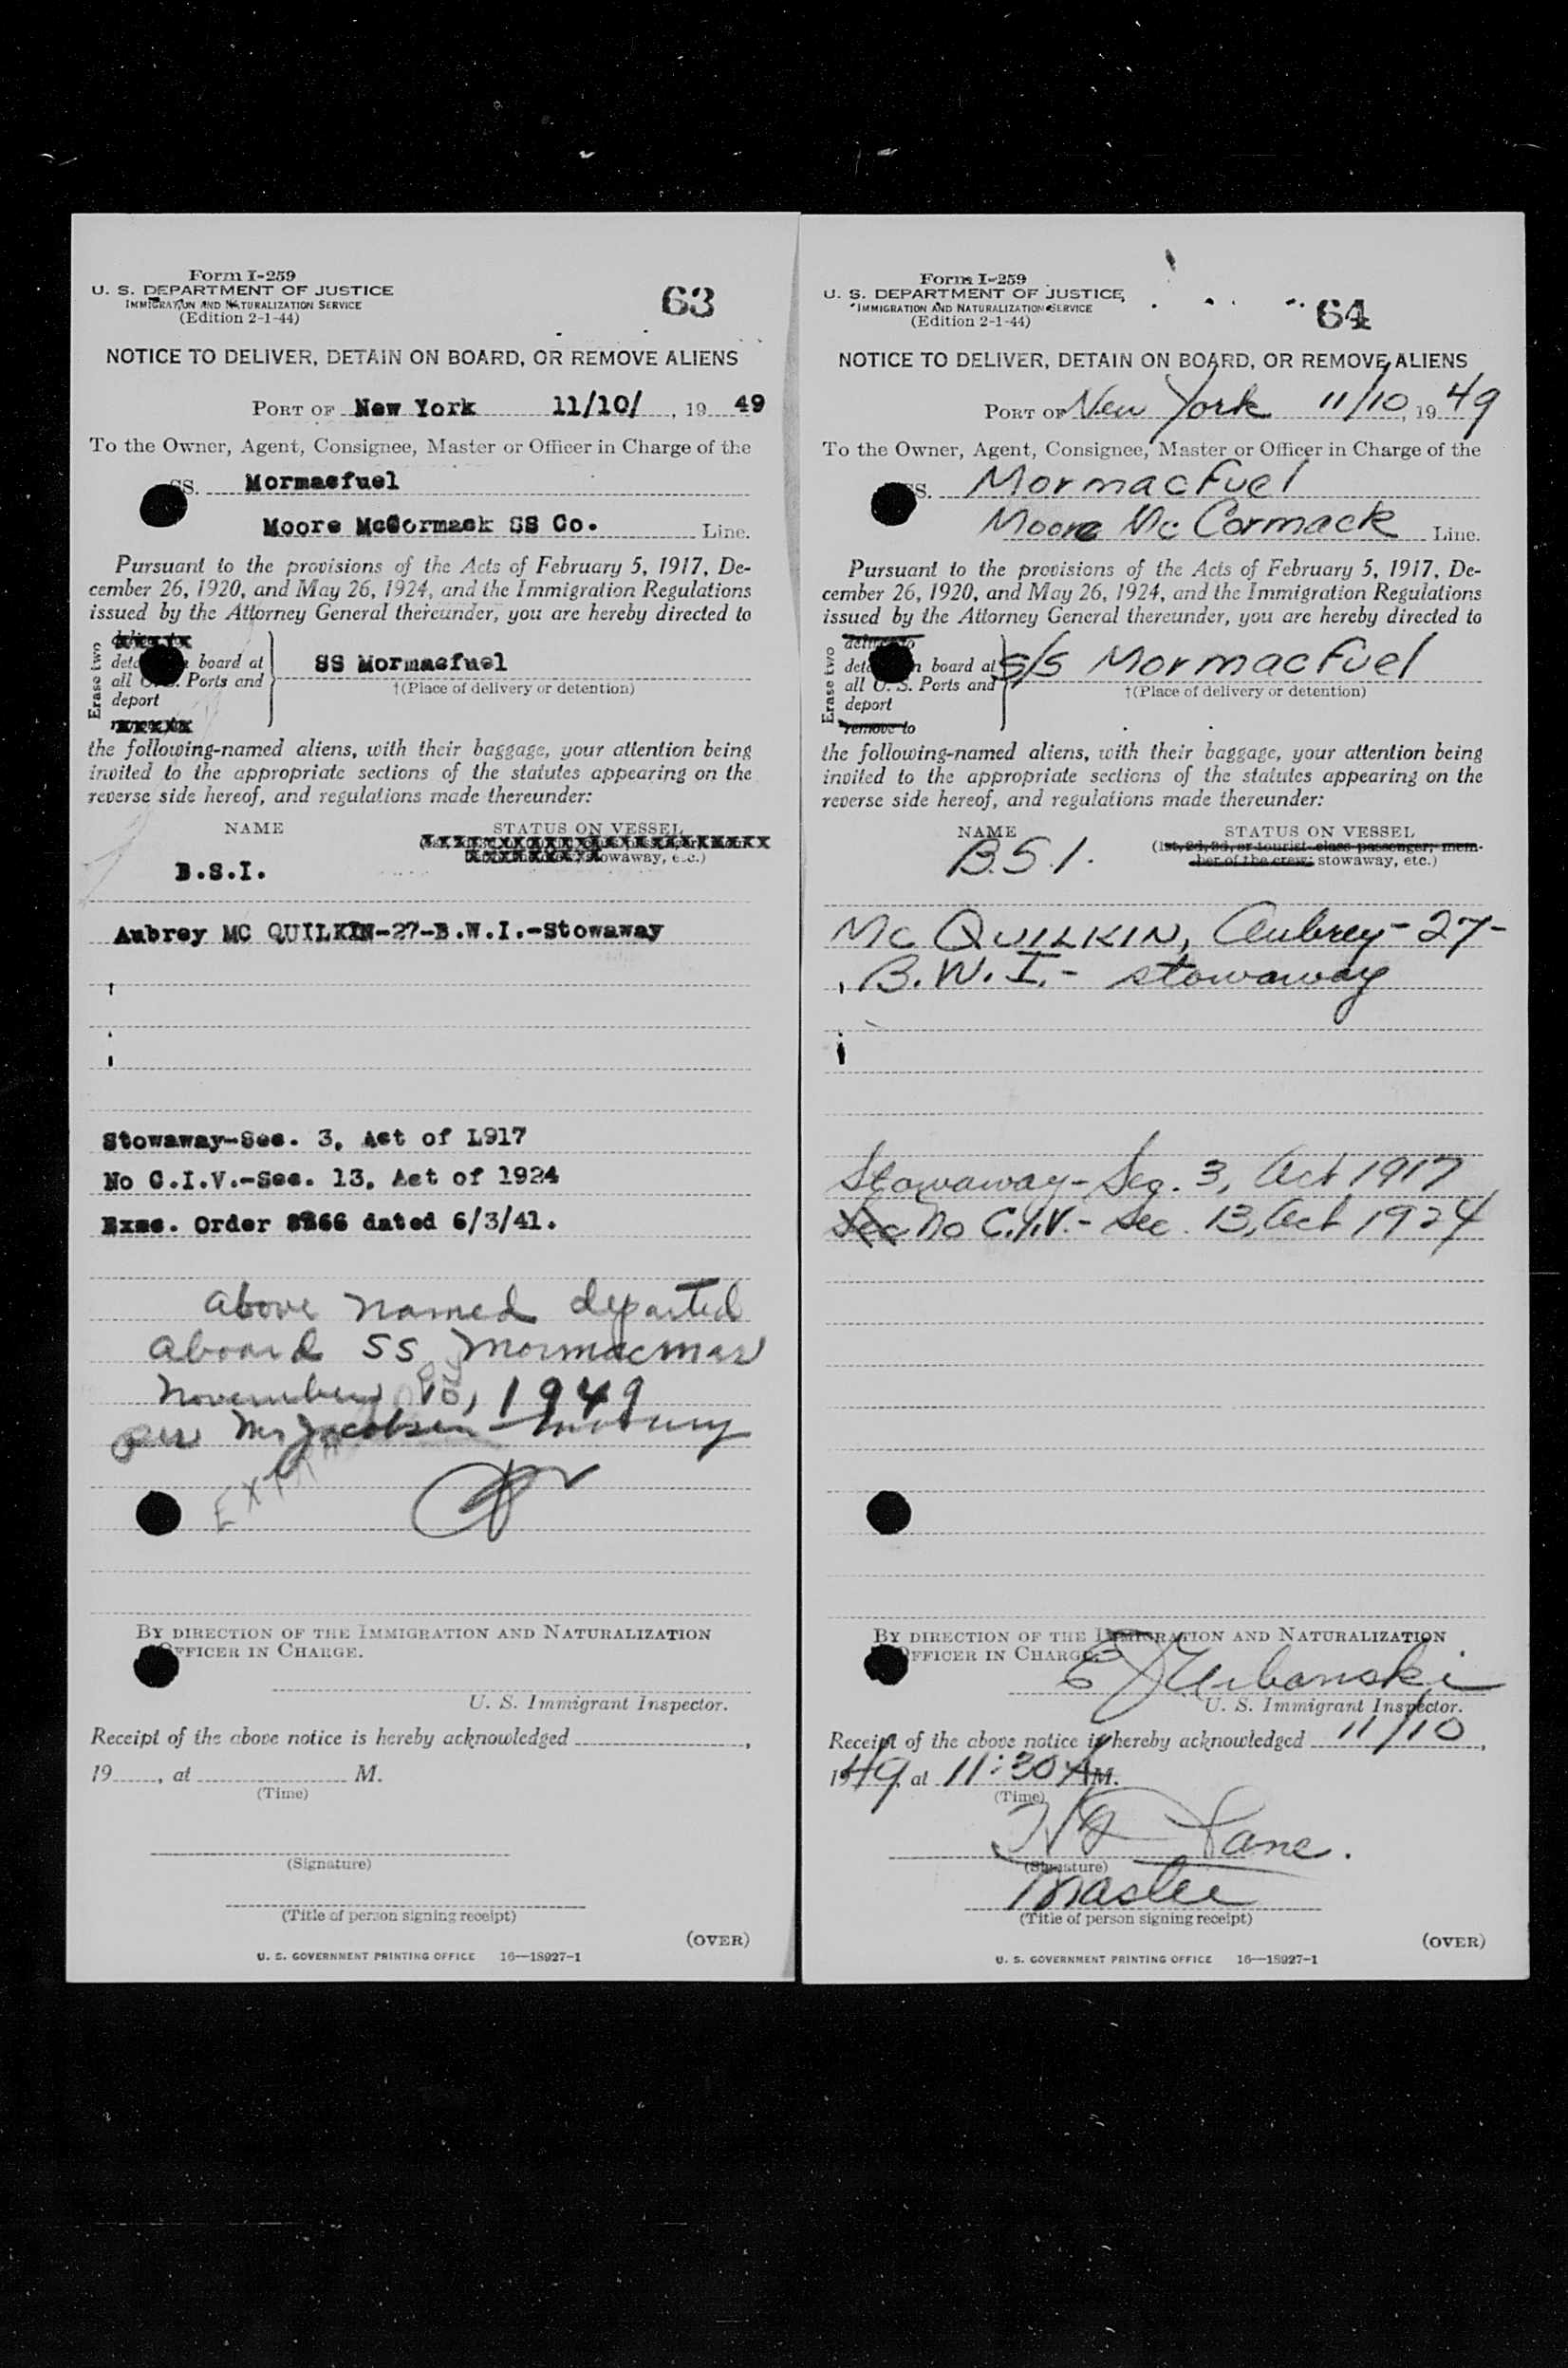 Form I-259
U. S. DEPARTMENT OF JUSTICE
IMMIGRATION AND NATURALIZATION SERVICE
(Edition 2-1-44)
63
NOTICE TO DELIVER, DETAIN ON BOARD, OR REMOVE ALIENS
PORT OF New York 11/10/, 19 49
To the Owner, Agent, Consignee, Master or Officer in Charge of the
SS. Mormacfuel
Moore McCormack SS Co. Line.
Pursuant to the provisions of the Acts of February 5, 1917, De-
cember 26, 1920, and May 26, 1924, and the Immigration Regulations
issued by the Attorney General thereunder, you are hereby directed to
Erase two
board at
all U. S. Ports and
deport
SS Mormacfuel
†(Place of delivery or detention)
the following-named aliens, with their baggage, your attention being
invited to the appropriate sections of the statutes appearing on the
reverse side hereof, and regulations made thereunder:
NAME STATUS ON VESSEL
stowaway, etc.)
B.S.I.
Aubrey MC QUILKIN-27-B.W.I.-Stowaway
Stowaway-Sec. 3, Act of L917
No C.I.V.-Sec. 13, Act of 1924
Exec. Order 8766 dated 6/3/41.
above named departed
aboard SS Mormacmar
November 1949
per Mr Jacobsen
BY DIRECTION OF THE IMMIGRATION AND NATURALIZATION
OFFICER IN CHARGE.
U. S. Immigrant Inspector.
Receipt of the above notice is hereby acknowledged ,
19 , at M.
(Time)
(Signature)
(Title of person signing receipt)
(OVER)
U. S. GOVERNMENT PRINTING OFFICE 16—18927-1
Form I-259
U. S. DEPARTMENT OF JUSTICE
IMMIGRATION AND NATURALIZATION SERVICE
(Edition 2-1-44)
64
NOTICE TO DELIVER, DETAIN ON BOARD, OR REMOVE ALIENS
PORT OF New York 11/10, 19 49
To the Owner, Agent, Consignee, Master or Officer in Charge of the
SS. Mormacfuel
Moore McCormack Line.
Pursuant to the provisions of the Acts of February 5, 1917, De-
cember 26, 1920, and May 26, 1924, and the Immigration Regulations
issued by the Attorney General thereunder, you are hereby directed to
Erase two
deliver to
board at
all U. S. Ports and
deport
remove to
S/S Mormacfuel
†(Place of delivery or detention)
the following-named aliens, with their baggage, your attention being
invited to the appropriate sections of the statutes appearing on the
reverse side hereof, and regulations made thereunder:
NAME STATUS ON VESSEL
(1st, 2d, 3d, or tourist class passenger; mem-
ber of the crew; stowaway, etc.)
B.S.I.
Mc QUILKIN, Aubrey - 27-
B.W.I. - stowaway
Stowaway - Sec. 3, Act 1917
Sec No C.I.V. - Sec. 13, Act 1924
BY DIRECTION OF THE IMMIGRATION AND NATURALIZATION
OFFICER IN CHARGE.
E J Urbanski
U. S. Immigrant Inspector.
Receipt of the above notice is hereby acknowledged 11/10,
1949, at 11:30 AM.
(Time)
Lane.
(Signature)
Master
(Title of person signing receipt)
(OVER)
U. S. GOVERNMENT PRINTING OFFICE 16—18927-1